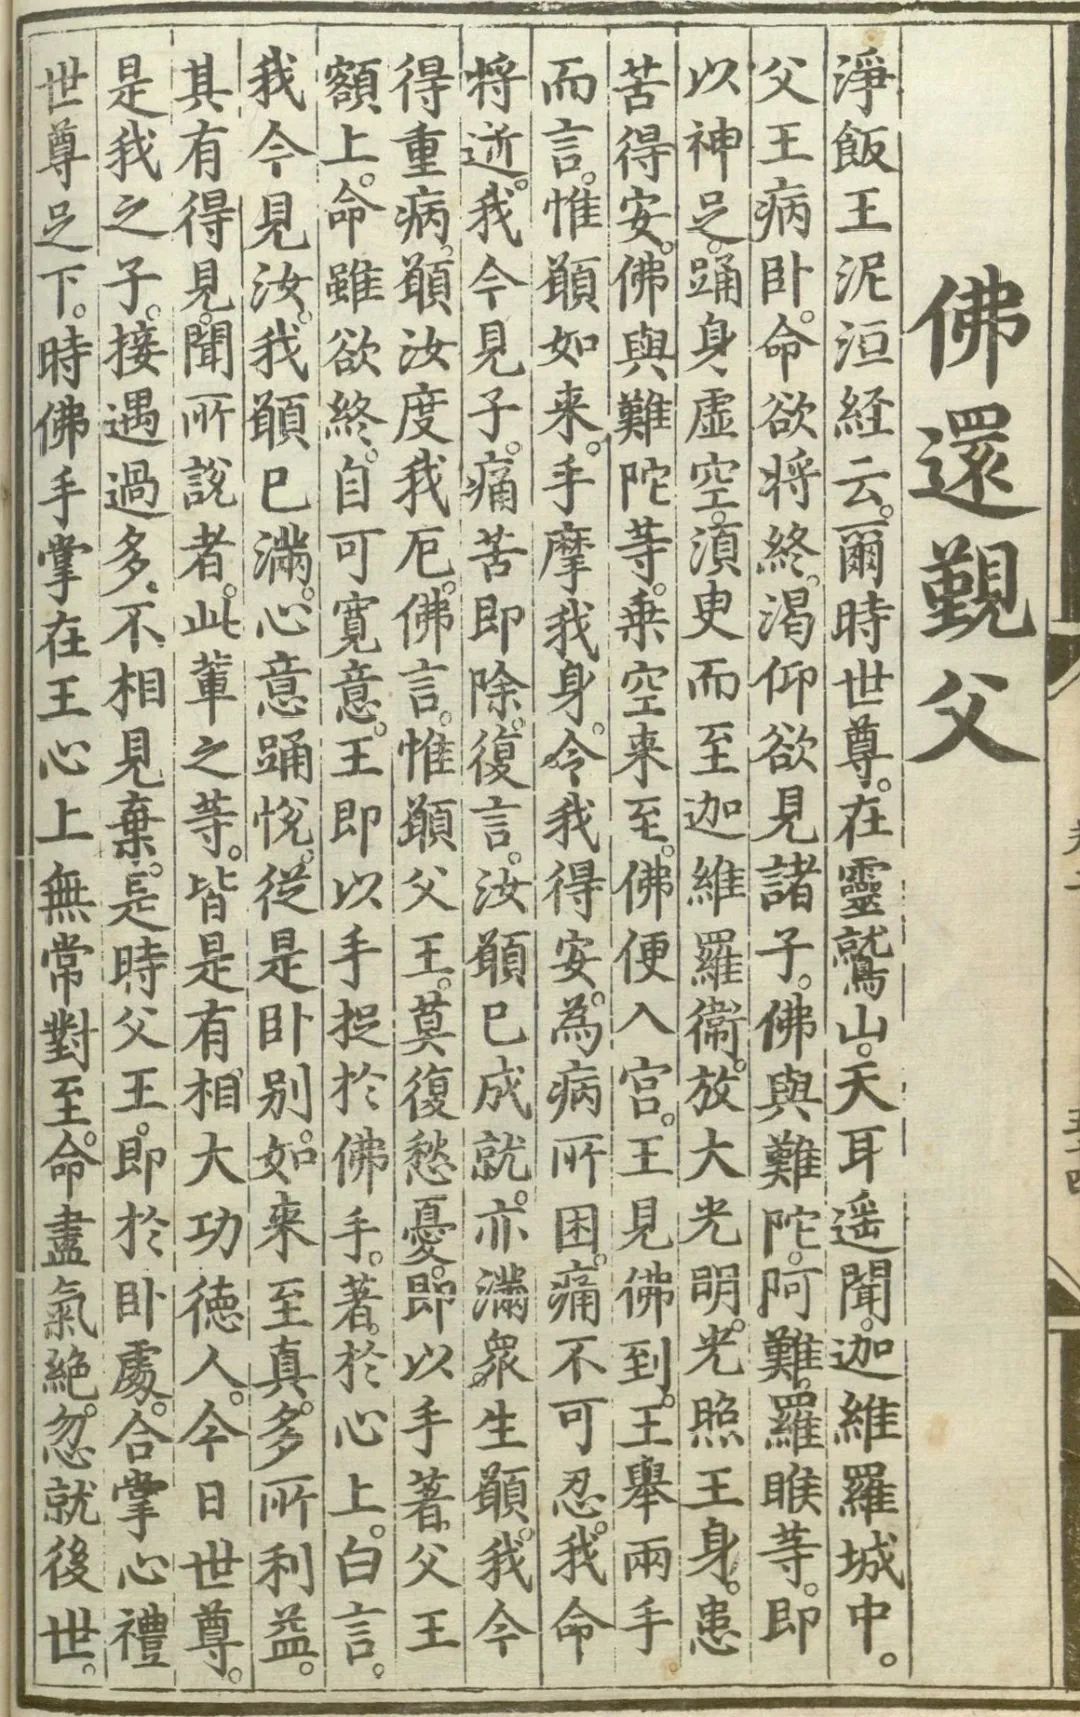 佛還覲父
淨飯王泥洹経云。爾時世尊。在靈鷲山。天耳遥聞。迦維羅城中。
父王病卧。命欲將終。渴仰欲見諸子。佛與難陀。阿難。羅睺等。即
以神足。踊身虛空。湏臾而至迦維羅衞。放大光明。光照王身。患
苦得安。佛與難陀等。乗空来至。佛便入宫。王見佛到。王舉兩手
而言。惟願如来。手摩我身。令我得安。為病所困。痛不可忍。我命
將逝。我今見子。痛苦即除。復言。汝願已成就。亦滿衆生願。我今
得重病。願汝度我厄。佛言。惟願父王。莫復愁憂。即以手著父王
額上。命雖欲終。自可寛意。王即以手捉於佛手。著於心上。白言。
我今見汝。我願已滿。心意踊悅。從是卧别。如来至真。多所利益。
其有得見。聞所說者。此輩之等。皆是有相大功徳人。今日世尊。
是我之子。接遇過多。不相見棄。是時父王。即於卧處。合掌心禮
世尊足下。時佛手掌在王心上無常對至。命盡氣絶。忽就後世。